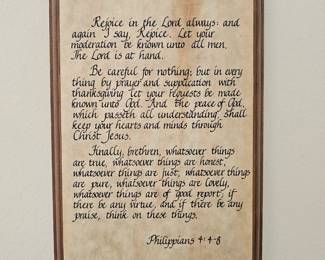 Rejoice in the Lord always: and
again I say, Rejoice. Let your
moderation be known unto all men.
The Lord is at hand.
Be careful for nothing; but in every
thing by prayer and supplication with
thanksgiving let your requests be made
known unto God. And the peace of God,
which passeth all understanding, shall
keep your hearts and minds through
Christ Jesus.
Finally, brethren, whatsoever things
are true, whatsoever things are honest,
whatsoever things are just, whatsoever things
are pure, whatsoever things are lovely,
whatsoever things are of good report; if
there be any virtue, and if there be any
praise, think on these things.
Philippians 4:4-8